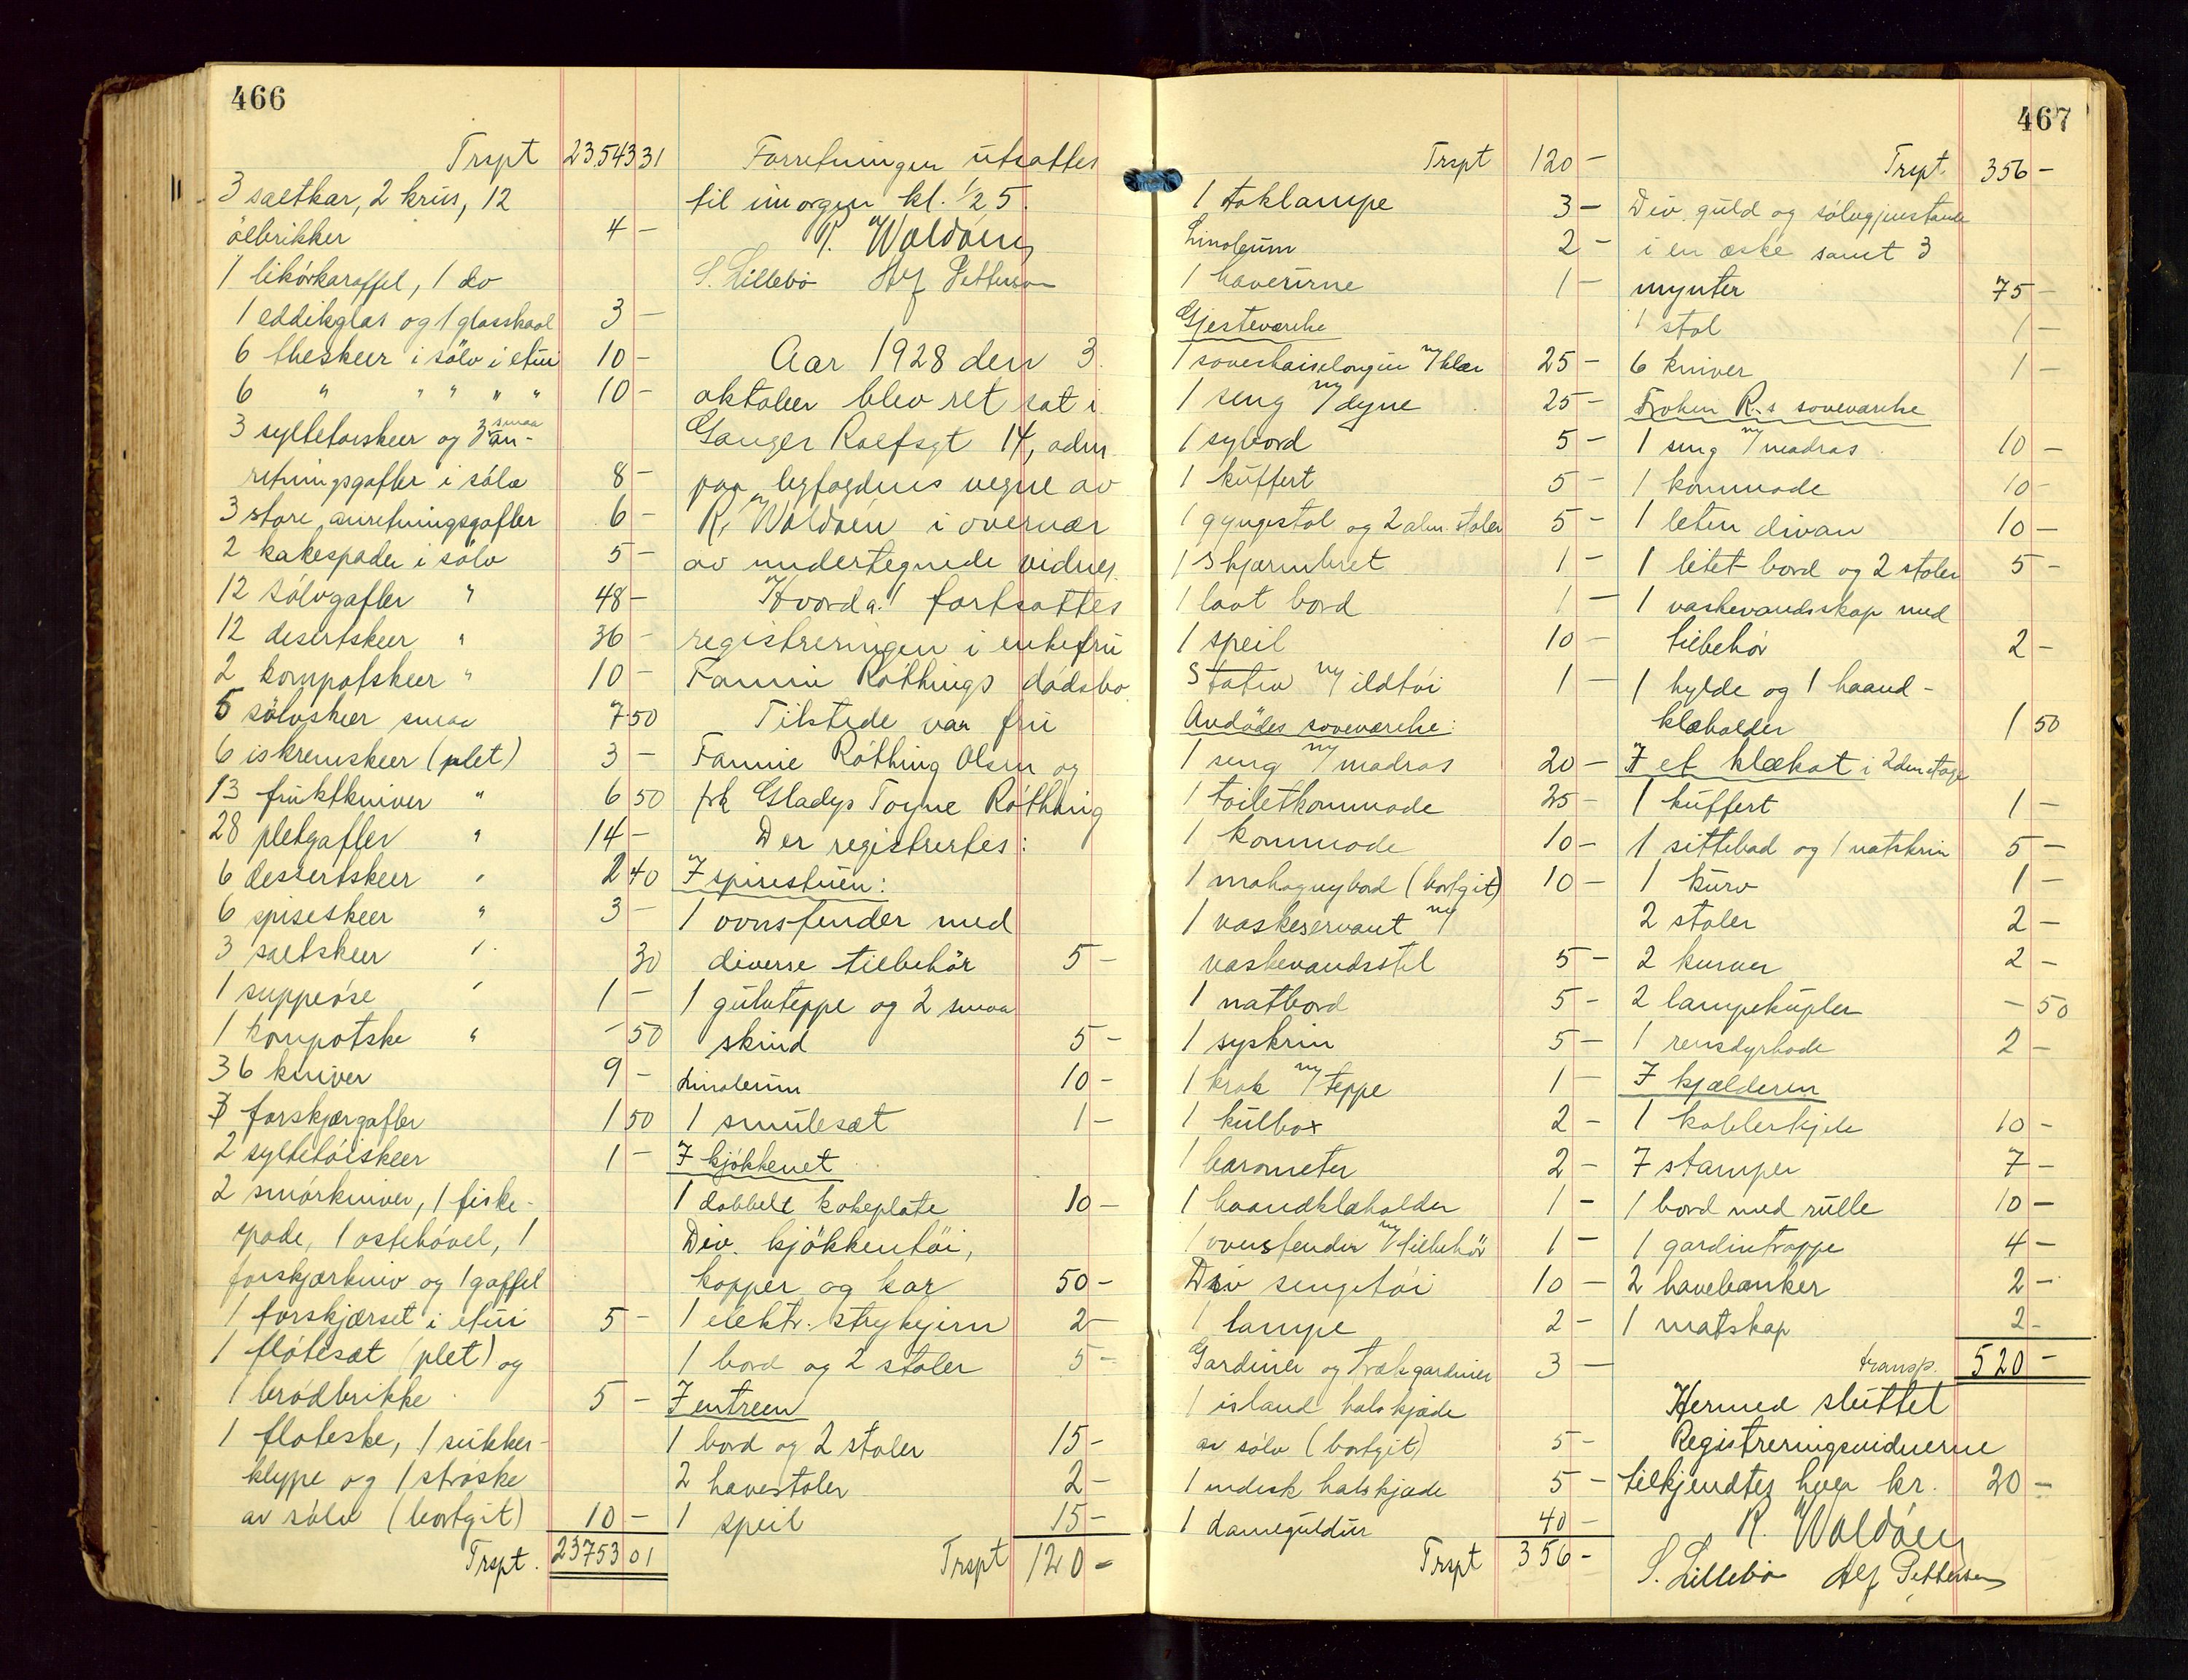 466
Trspt 23.543 31
3 saltkar, 2 krus, 12
ölbrikker 4 -
1 likörkaraffel, 1 do
1 eddikglas og 1 glasskaal 3 -
6 theskeer i sölv i etui 10 -
6 " " " " " 10 -
3 syltetöiskeer og 3 smaa an-
retningsgafler i sölv 8 -
3 store anretningsgafler 6 -
2 kakespader i sölv 5 -
12 sölvgafler " 48 -
12 desertskeer " 36 -
2 kompotskeer " 10 -
5 sölvskeer smaa 7 50
6 iskremskeer (plet) 3 -
13 fruktkniver " 6 50
28 pletgafler " 14 -
6 dessertskeer " 2 40
6 spiseskeer " 3 -
3 saltskeer " 30
1 suppeöse " 1 -
1 kompotske " - 50
36 kniver 9 -
3 forskjærgafler 1 50
2 syltetöiskeer 1 -
2 smörkniver, 1 fiske-
spade, 1 ostehövel, 1
forskjærkniv og 1 gaffel
1 forskjærset i etui 5 -
1 flötesæt (plet) og
1 brödbrikke 5 -
1 flöteske, 1 sukker-
klype og 1 ströske
av sölv (bortgit) 10 -
Trspt. 23753 01
Forretningen utsattes
til imorgen kl. 1/2 5.
R. Waldöen
S. Lillebö Alf Pettersen
Aar 1928 den 3.
oktober blev ret sat i
Ganger Rolfsgt 14, adm.
paa byfogdens vegne av
R. Waldöen i overvær
av undertegnede vidner.
Hvorda! fortsattes
registreringen i enkefru
Fannie Röthings dödsbo
Tilstede var fru
Fannie Röthing Olsen og
frk Gladys Toyne Röthing
Der registrertes:
I spisestuen:
1 ovnsfender med
diverse tilbehör 5 -
1 gulvteppe og 2 smaa
skind 5 -
Linoleum 10 -
1 smulesæt 1 -
I kjökkenet
1 dobbelt kokeplate 10 -
Div. kjökkentöi,
kopper og kar 50 -
1 elektr. strykejern 2 -
1 bord og 2 stoler 5 -
I entreen
1 bord og 2 stoler 15 -
2 havestoler 2 -
1 speil 15 -
Trspt 120 -
Trspt 120 -
1 taklampe 3 -
Linoleum 2 -
1 haveurne 1 -
Gjesteværelse
1 sovechaiselongue m/klær 25 -
1 seng m/dyne 25 -
1 sybord 5 -
1 kuffert 5 -
1 gyngestol og 2 alm. stoler 5 -
1 skjærmbret 1 -
1 lavt bord 1 -
1 speil 10 -
Stativ m/ildtöi 1 -
Avdödes soveværelse:
1 seng m/madras 20 -
1 toiletkommode 25 -
1 kommode 10 -
1 mahognybord (bortgit) 10 -
1 vaskeservant m/
vaskevandsstel 5 -
1 natbord 5 -
1 syskrin 5 -
1 krak m/teppe 1 -
1 kulbox 2 -
1 barometer 2 -
1 haandklæholder 1 -
1 ovnsfender m/tilbehör 1 -
Div sengetöi 10 -
1 lampe 2 -
Gardiner og trækgardiner 3 -
1 island halskjæde
av sölv (bortgit) 5 -
1 indisk halskjæde 5 -
1 dameguldur 40 -
Trspt 356 -
467
Trspt. 356 -
Div. guld og sölvgjenstande
i en æske samt 3
mynter 75 -
1 stol 1 -
6 kniver 1 -
Fröken R.s soveværelse
1 seng m/madras 10 -
1 kommode 10 -
1 liten divan 10 -
1 litet bord og 2 stoler 5 -
1 vaskevandsskap med
tilbehör 2 -
1 hylde og 1 haand-
klæholder 1 50
I et klækot i 2den etage
1 kuffert 1 -
1 sittebad og 1 natskrin 5 -
1 kurv 1 -
2 stoler 2 -
2 kurver 2 -
2 lampekupler - 50
1 rensdyrhode 2 -
I kjælderen
1 kobberkjele 10 -
7 stamper 7 -
1 bord med rulle 10 -
1 gardintrappe 4 -
2 havebænker 2 -
1 matskap 2 -
transp. 520 -
Hermed sluttet
Registreringsvidnerne
tilkjendtes hver kr. 20 -
R. Waldöen
S. Lillebö Alf Pettersen